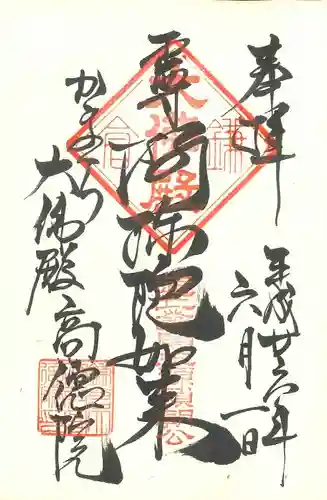 奉拝
平成廿六年
六月一日
阿弥陀如来
かまくら
大佛殿高徳院
鎌
倉